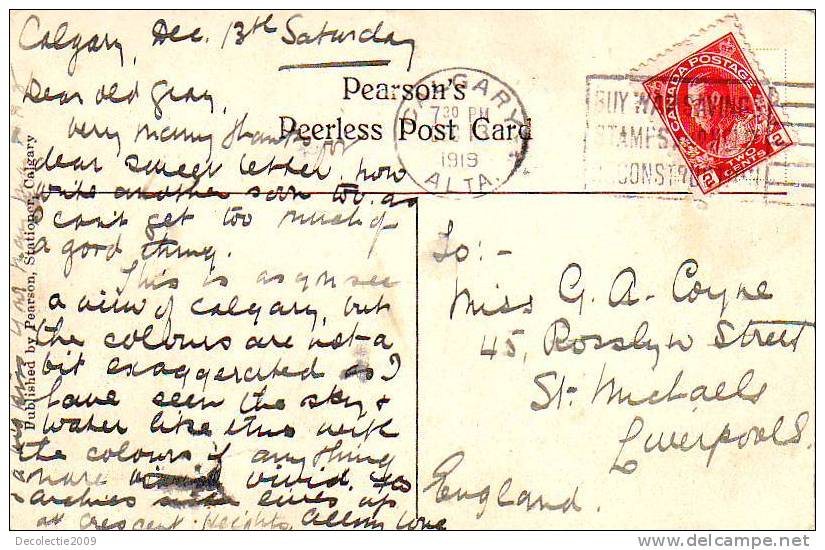 Calgary, Dec. 13th Saturday
Dear old Gray,
Very many thanks for
dear sweet letter, now
write another soon too, as
I can't get too much of
a good thing.
This is as you see
a view of Calgary, but
the colours are not a
bit exaggerated as I
have seen the sky &
water like this with
the colours if anything
more vivid.
archies lives up
at Crescent Heights, All my love
Published by Pearson, Stationer, Calgary
Pearson's
Peerless Post Card
CALGARY
7 30 PM
1919
ALTA.
BUY WAR SAVINGS
STAMPS
CANADA POSTAGE
2 TWO CENTS 2
To:-
Miss G. A. Coyne
45, Rosslyn Street
St. Michaels
Liverpool S.
England.
Decolectie2009
delcampe.net